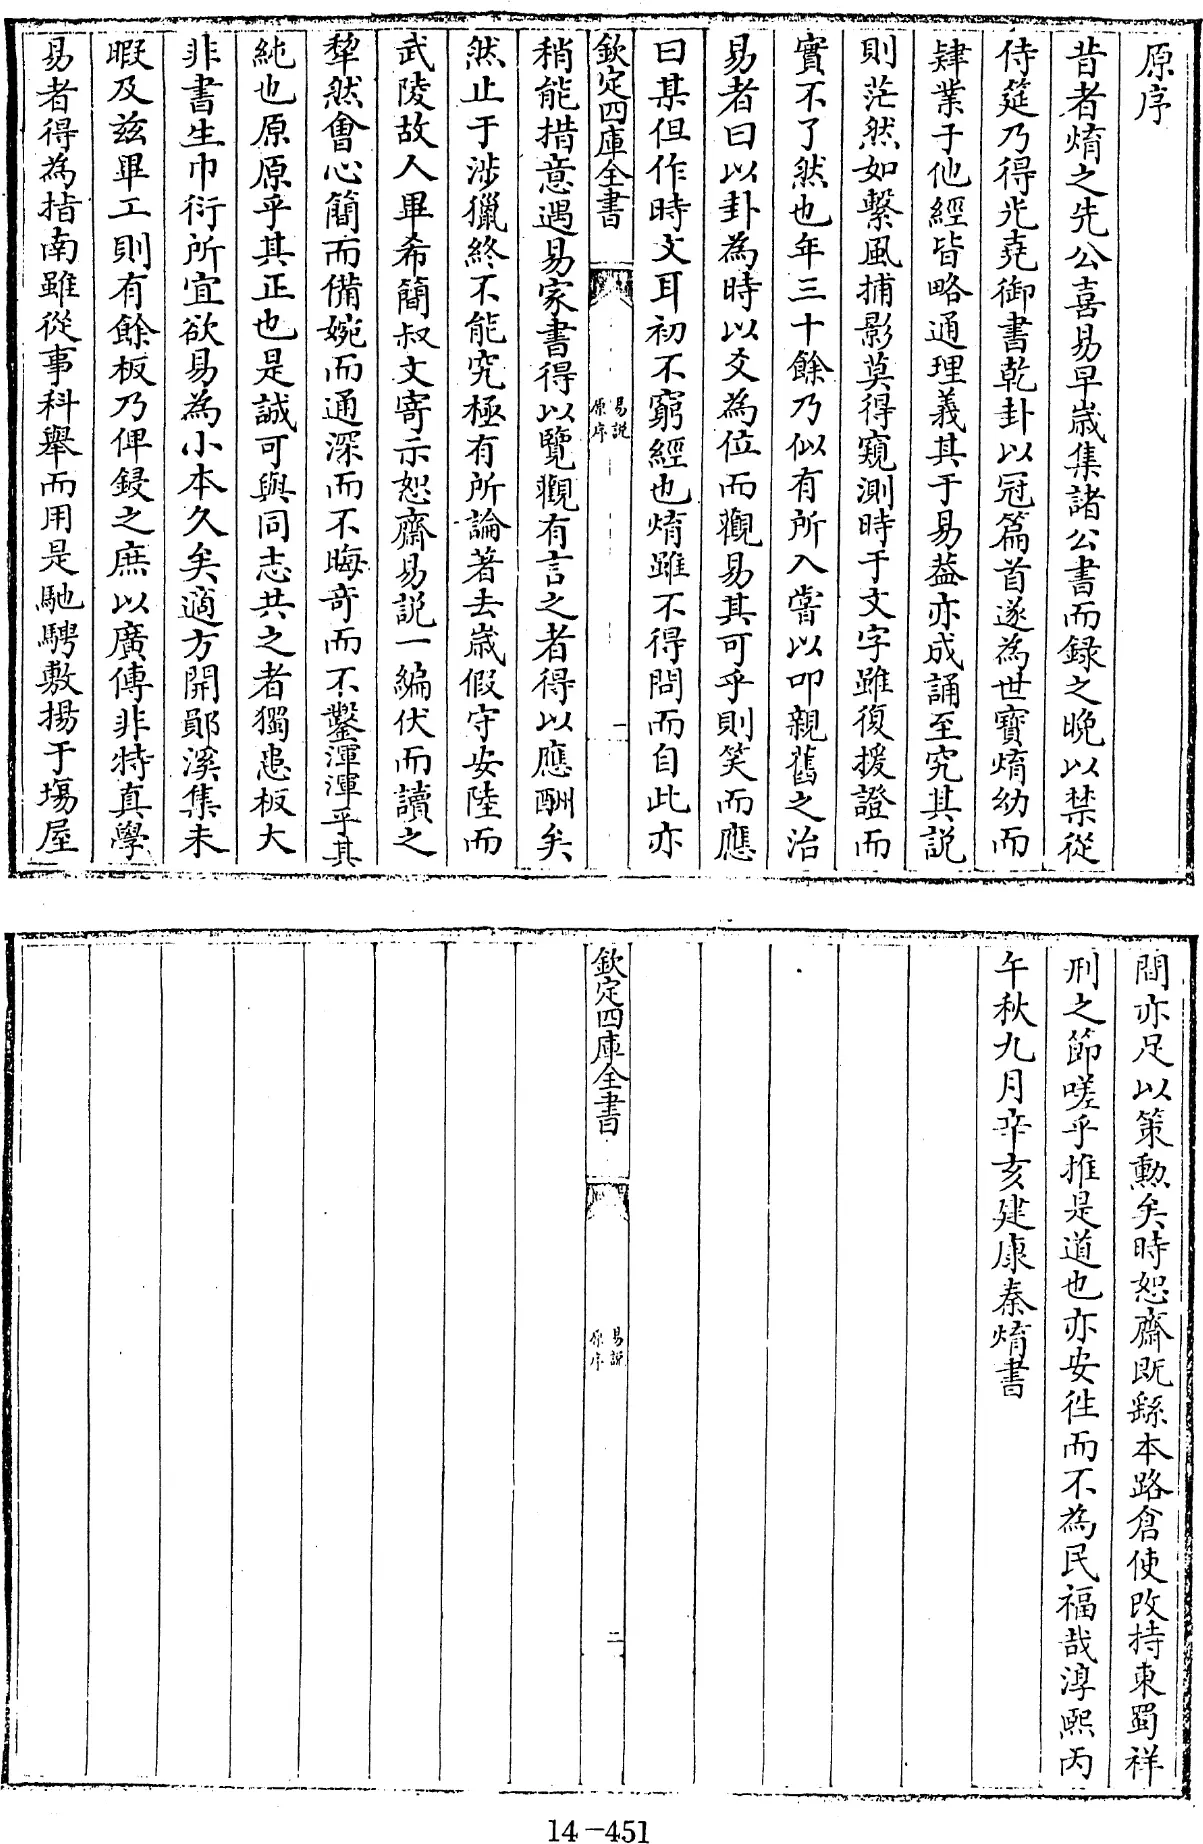 原序
昔者焴之先公喜易早嵗集諸公書而録之晩以禁從
侍筵乃得光堯御書乾卦以冠篇首遂為世寳焴幼而
肄業于他經皆略通理義其于易葢亦成誦至究其説
則茫然如繫風捕影莫得窺測時于文字雖復援證而
實不了然也年三十餘乃似有所入嘗以叩親舊之治
易者曰以卦為時以爻為位而觀易其可乎則笑而應
曰某但作時文耳初不窮經也焴雖不得問而自此亦
欽定四庫全書
易説
原序
一
稍能措意遇易家書得以覽觀有言之者得以應酬矣
然止于渉獵終不能究極有所論著去嵗假守安陸而
武陵故人畢希簡叔文寄示恕齋易説一編伏而讀之
犂然會心簡而備婉而通深而不晦竒而不鑿渾渾乎其
純也原原乎其正也是誠可與同志共之者獨患板大
非書生巾衍所宜欲易為小本久矣適方開鄖溪集未
暇及兹畢工則有餘板乃俾鋟之庶以廣傳非特真學
易者得為指南雖從事科舉而用是馳騁敷揚于塲屋
間亦足以策勲矣時恕齋既繇本路倉使改持東蜀祥
刑之節嗟乎推是道也亦安徃而不為民福哉淳熙丙
午秋九月辛亥建康秦焴書
欽定四庫全書
易説
原序
二
14-451